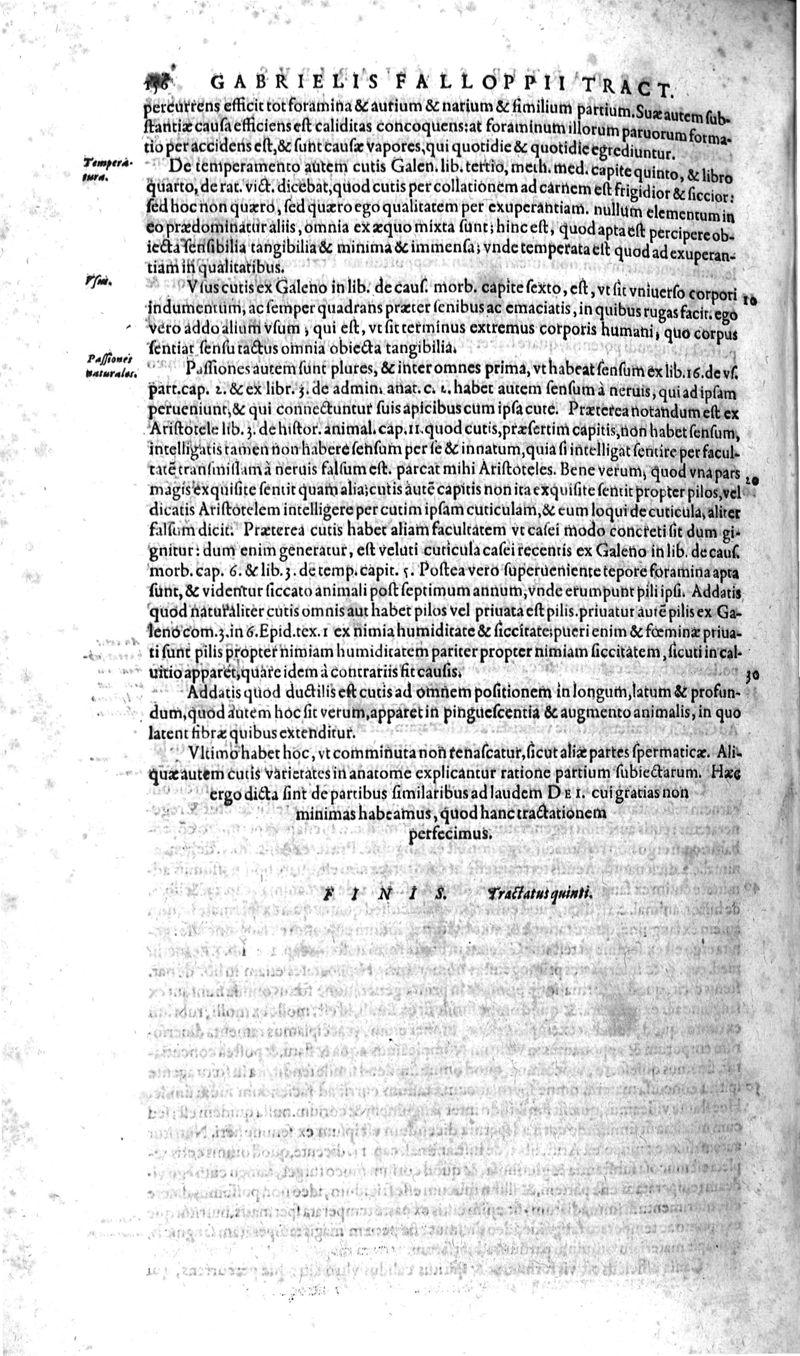 GABRIELIS FALLOPPII TRACT.
percurrens efficit tot foramina & aurium & narium & similium partium. Suæ autem sub-
stantiæ causa efficiens est caliditas concoquens: at foraminum illorum paruorum forma-
tio per accidens est, & sunt causæ vapores, qui quotidie & quotidie egrediuntur.
Tempera-
tura.
De temperamento autem cutis Galen. lib. tertio, meth. med. capite quinto, & libro
quarto, de rat. vict. dicebat, quod cutis per collationem ad carnem est frigidior & siccior:
sed hoc non quæro, sed quæro ego qualitatem per exuperantiam. nullum elementum in
eo prædominatur aliis, omnia ex æquo mixta sunt; hinc est, quod apta est percipere ob-
iecta sensibilia tangibilia & minima & immensa; vnde temperata est quod ad exuperan-
tiam in qualitatibus.
Vsus.
Vsus cutis ex Galeno in lib. de caus. morb. capite sexto, est, vt sit vniuerso corpori
10
indumentum, ac semper quadrans præter senibus ac emaciatis, in quibus rugas facit. ego
vero addo alium vsum, qui est, vt sit terminus extremus corporis humani, quo corpus
sentiat sensu tactus omnia obiecta tangibilia.
Passiones
naturales.
Passiones autem sunt plures, & inter omnes prima, vt habeat sensum ex lib. 16. de vs.
part. cap. 2. & ex libr. 3. de admin. anat. c. 1. habet autem sensum à neruis, qui ad ipsam
perueniunt, & qui connectuntur suis apicibus cum ipsa cute. Præterea notandum est ex
Aristotele lib. 3. de histor. animal. cap. 11. quod cutis, præsertim capitis, non habet sensum,
intelligatis tamen non habere sensum per se & innatum, quia si intelligat sentire per facul-
tatē transmissam à neruis falsum est. parcat mihi Aristoteles. Bene verum, quod vna pars
20
magis exquisite sentit quam alia; cutis autē capitis non ita exquisite sentit propter pilos, vel
dicatis Aristotelem intelligere per cutim ipsam cuticulam, & eum loqui de cuticula, aliter
falsum dicit. Præterea cutis habet aliam facultatem vt casei modo concreti sit dum gi-
gnitur: dum enim generatur, est veluti cuticula casei recentis ex Galeno in lib. de caus.
morb. cap. 6. & lib. 3. de temp. capit. 5. Postea vero superueniente tepore foramina apta
sunt, & videntur siccato animali post septimum annum, vnde erumpunt pili ipsi. Addatis
quod naturaliter cutis omnis aut habet pilos vel priuata est pilis. priuatur autē pilis ex Ga-
leno com. 3. in 6. Epid. tex. 1 ex nimia humiditate & siccitate: pueri enim & fœminæ priua-
ti sunt pilis propter nimiam humiditatem pariter propter nimiam siccitatem, sicuti in cal-
uitio apparet, quare idem à contrariis fit causis.
30
Addatis quod ductilis est cutis ad omnem positionem in longum, latum & profun-
dum, quod autem hoc sit verum, apparet in pinguescentia & augmento animalis, in quo
latent fibræ quibus extenditur.
Vltimo habet hoc, vt comminuta non renascatur, sicut aliæ partes spermaticæ. Ali-
quæ autem cutis varietates in anatome explicantur ratione partium subiectarum. Hæc
ergo dicta sint de partibus similaribus ad laudem DEI. cui gratias non
minimas habeamus, quod hanc tractationem
perfecimus.
FINIS. Tractatus quinti.